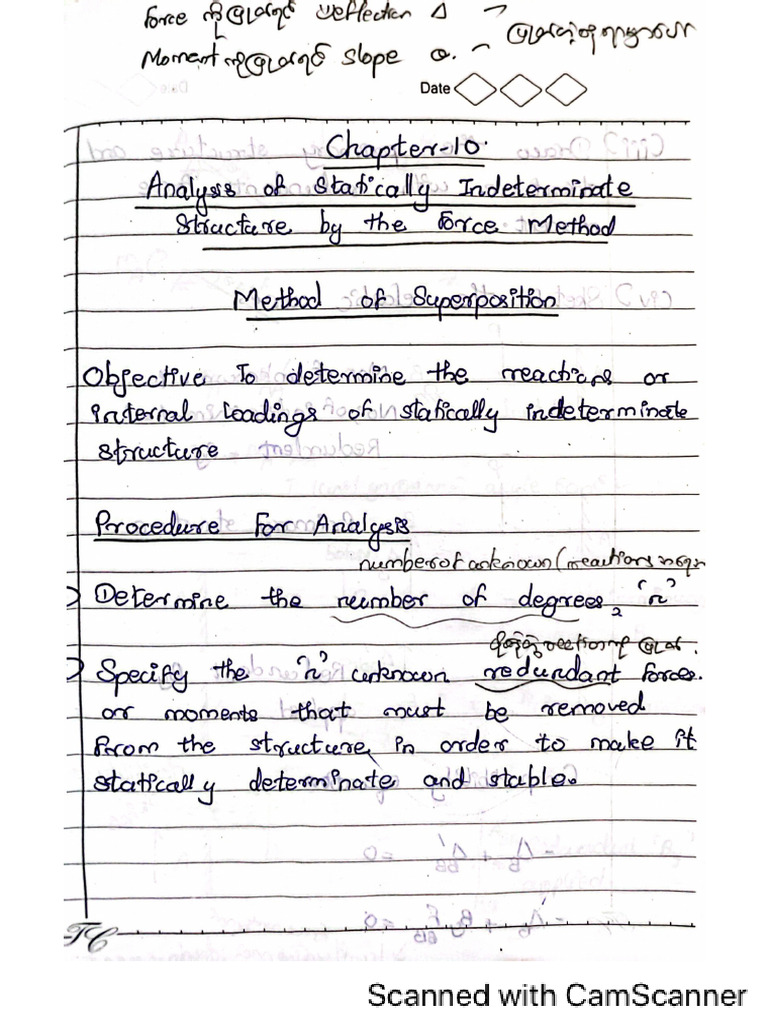 Force ကိုဖြုတ်ရင် Deflection Δ
Moment ကိုဖြုတ်ရင် slope θ.
Date
Chapter-10.
Analysis of Statically Indeterminate
Structure by the Force Method
Method of Superposition
Objective To determine the reactions or
internal loadings of statically indeterminate
structure
Procedure For Analysis
number of unknown (reactions
Determine the number of degrees, 'n'
Specify the 'n' unknown redundant forces.
or moments that must be removed
from the structure, in order to make it
statically determinate and stable.
TC
Scanned with CamScanner